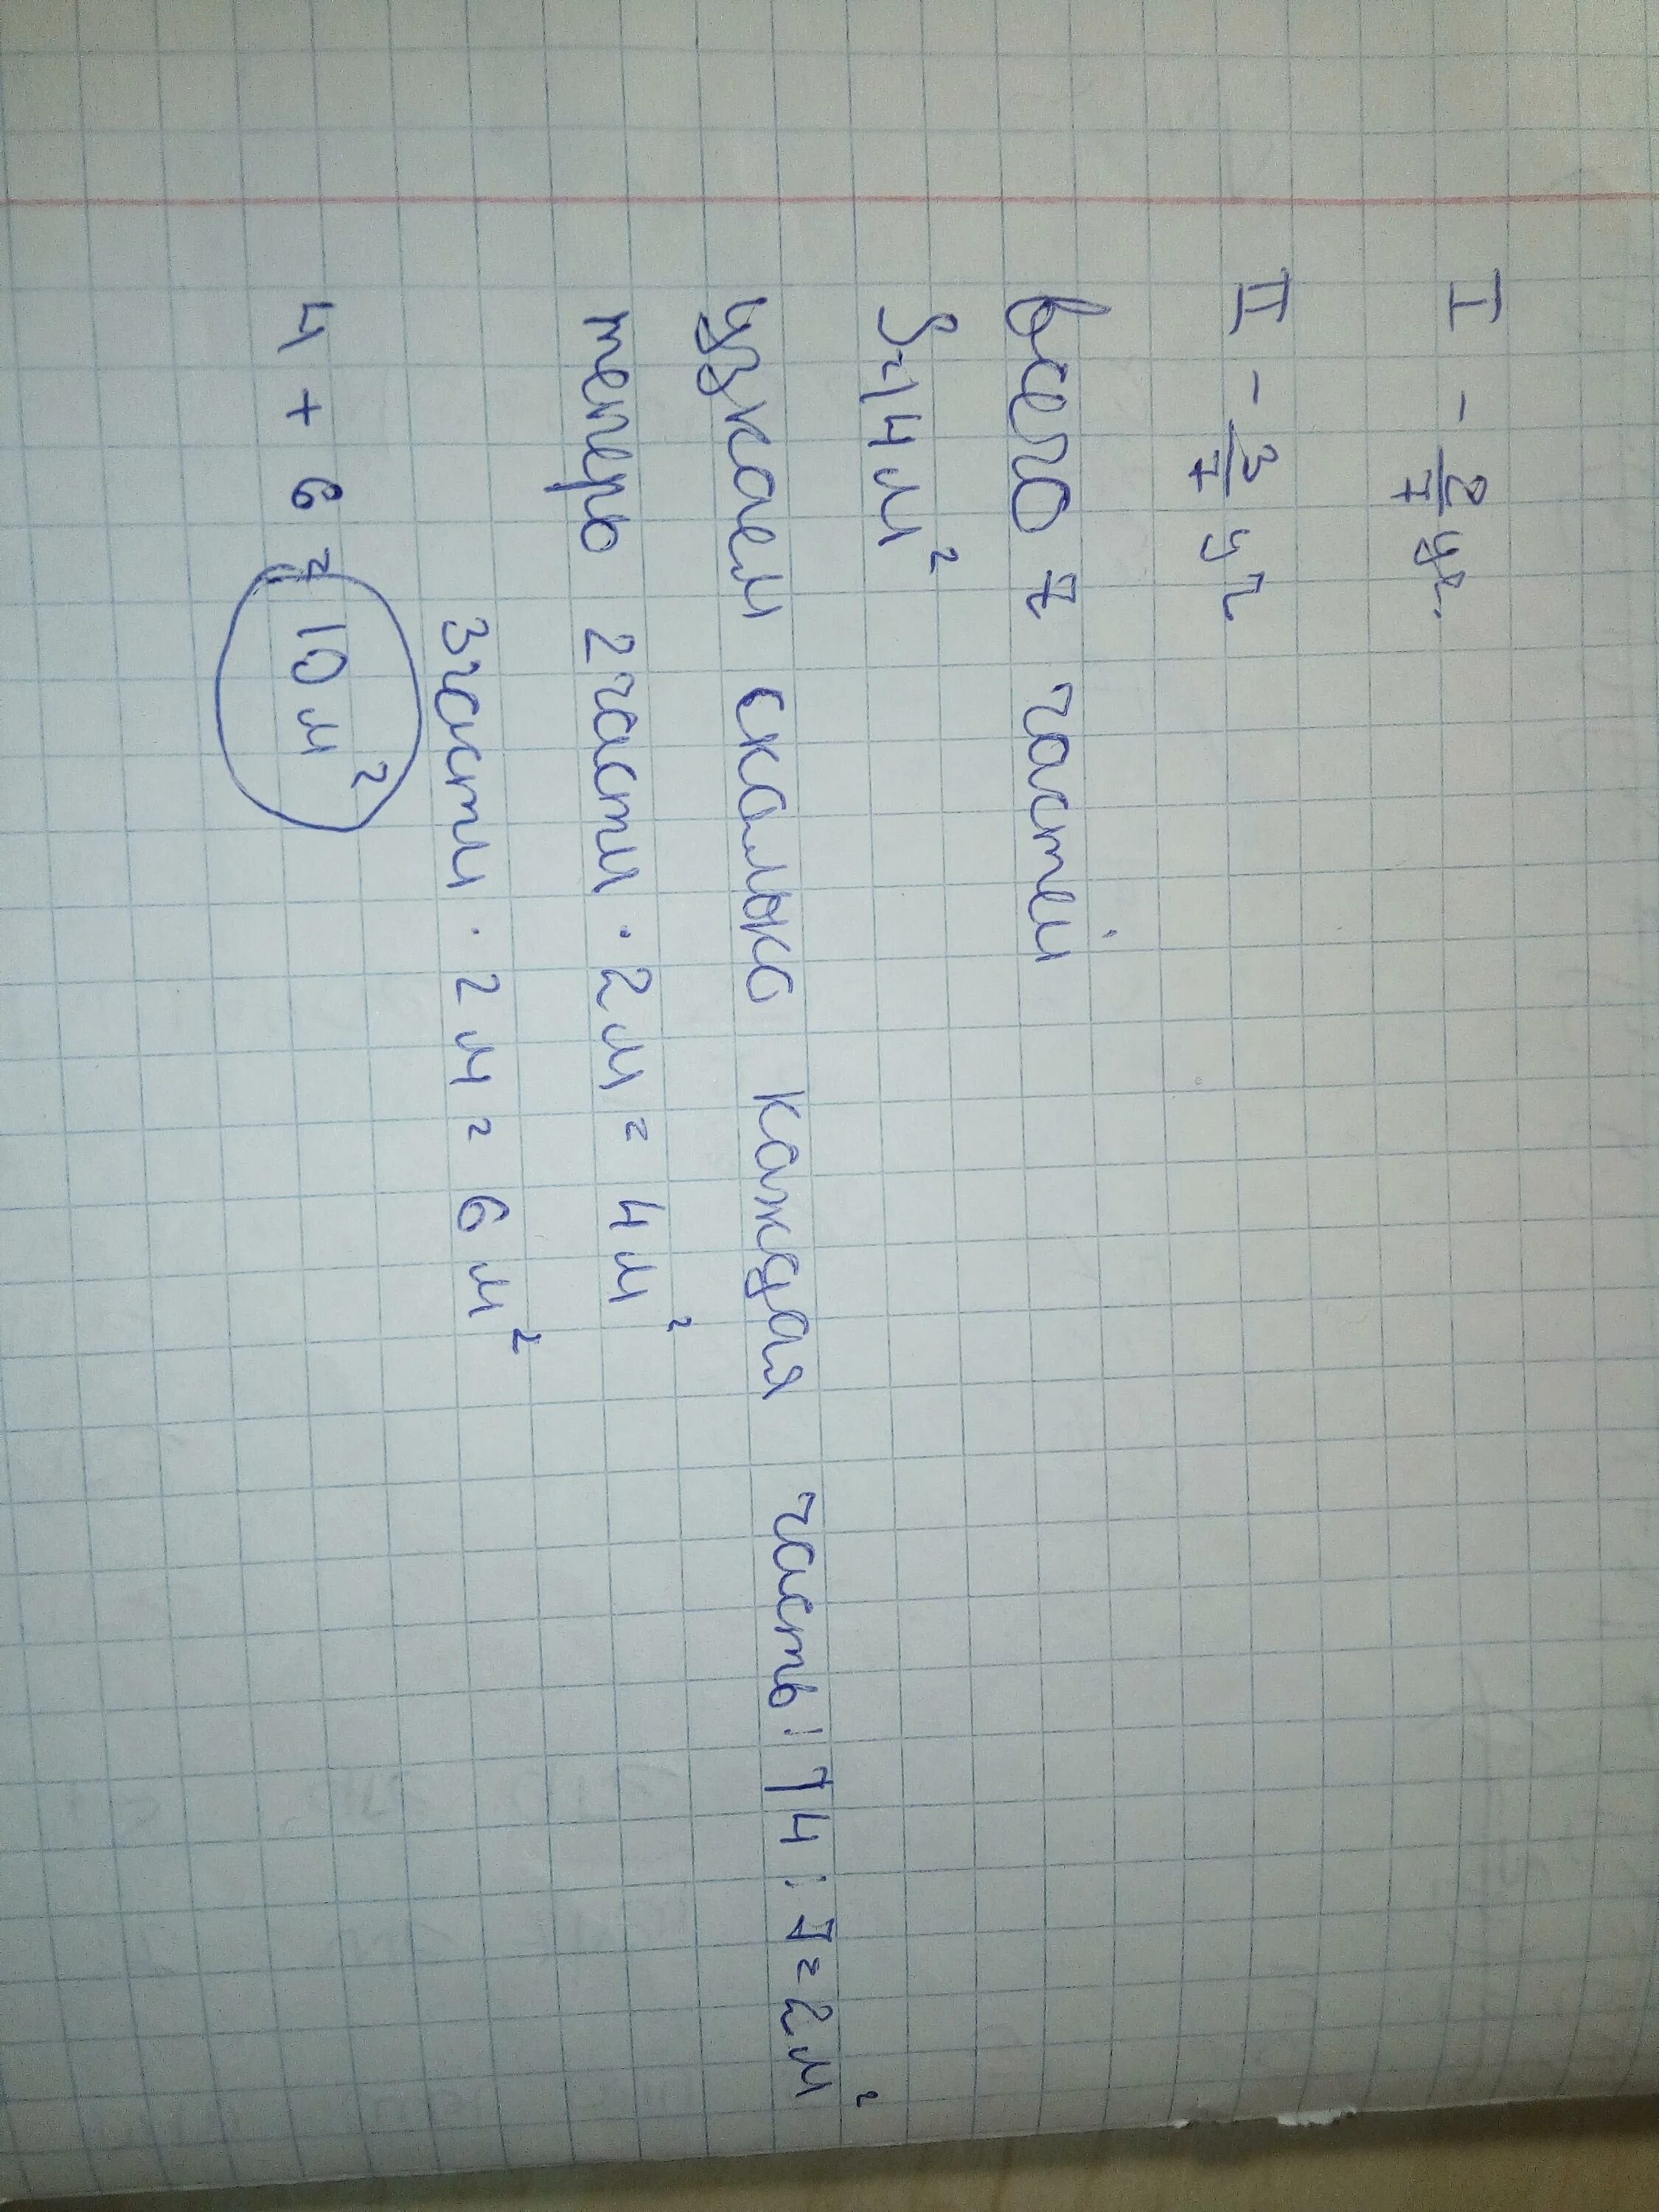 I - 2/7 уч.
II - 3/7 уч
всего 7 частей
S=14м²
узнаем сколько каждая часть! 14 : 7=2м²
теперь 2 части · 2м = 4м²
3 части · 2м = 6м²
4 + 6 = 10м²